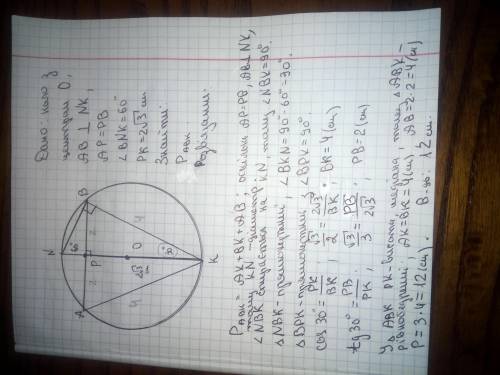 Дано коло з
центром O,
AB ⊥ NK,
AP = PB
∠BNK = 60°
PK = 2√3 см
Знайти:
P ABK
Розв'язання.
N
A
B
P
O
K
60
2
2
2√3 см
4
4
P ABK = AK + BK + AB; оскільки AP = PB, AB ⊥ NK,
тому KN - діаметр.
∠NBK спирається на KN, тому ∠NBK = 90°.
△NBK - прямокутний; ∠BKN = 90° - 60° = 30°.
△BPK - прямокутний; ∠BPK = 90°.
cos 30° = PK/BK; √3/2 = 2√3/BK; BK = 4 (см)
tg 30° = PB/PK; √3/3 = PB/2√3; PB = 2 (см)
У △ABK PK - висота, медіана, тому △ABK -
рівнобедрений; AK = BK = 4 (см), AB = 2·2 = 4 (см)
P = 3·4 = 12 (см) В-дь: 12 см.